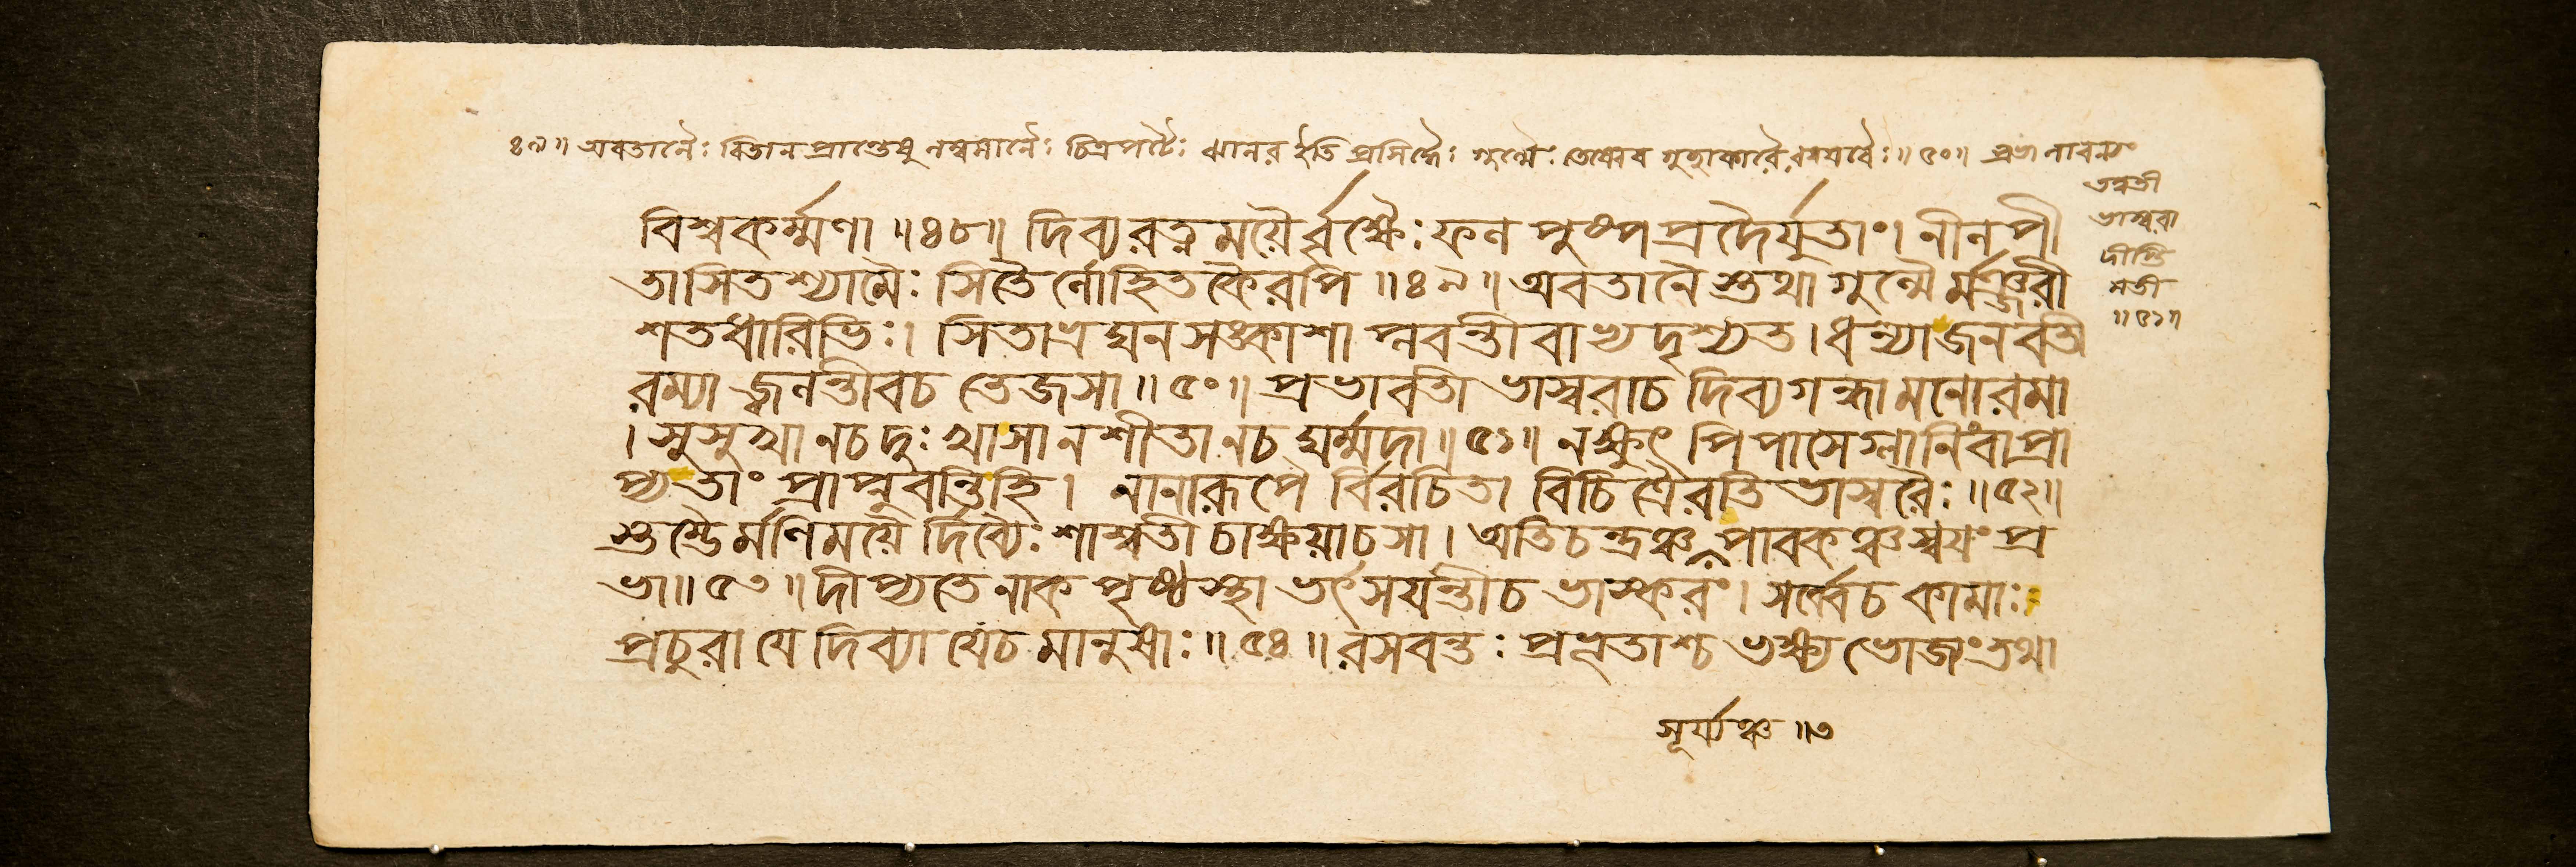 ৪৯॥ অবতানৈঃ বিতানপ্রান্তেষু লম্বমানৈঃ চিত্রপটৈঃ ঝালর ইতি প্রসিদ্ধৈঃ গুল্মৈঃ তেষ্বেব গুহাকারৈ ॥৫০॥ প্রভা
তন্বতী
ভাস্বরা
দীপ্তি
মতী
॥৫১॥
বিশ্বকর্ম্মণা ॥৪৮॥ দিব্যরত্নময়ৈর্ব্বৃক্ষৈঃ ফল পুষ্পপ্রদৈর্যুতাং। নীলপী
তাসিতশ্যামৈঃ সিতৈর্লোহিতকৈরপি ॥৪৯॥ অবতানৈস্তথা গুল্মৈর্মঞ্জরী
শতধারিভিঃ। সিতাভ্রঘনসঙ্কাশা প্লবন্তীবাথ দৃশ্যত। ধন্যাজনবতী
রম্যা জ্বলন্তীবচ তেজসা ॥৫০॥ প্রভাবতী ভাস্বরাচ দিব্যগন্ধামনোরমা
। সুসুখানচদুঃখাসা নশীতানচঘর্ম্মদা ॥৫১॥ নক্ষুৎ পিপাসেগ্লানিংবাপ্রা
প্যতাং প্রাপ্নুবন্তিহি। নানারূপৈর্বিরচিতা বিচিত্রৈরতিভাস্বরৈঃ ॥৫২॥
স্তম্ভৈর্মণিময়ৈর্দিব্যৈঃ শাশ্বতী চাক্ষয়াচসা। অতিচন্দ্রঞ্চ পাবকঞ্চস্বয়ং প্র
ভা॥৫৩॥দীপ্যতেনাকপৃষ্ঠস্থা ভর্ৎসযন্তীচ ভাস্করং। সর্ব্বেচ কামাঃ
প্রচুরা যে দিব্যা যেচ মানুষাঃ ॥৫৪॥ রসবন্তঃ প্রভূতাশ্চ ভক্ষ্য ভোজংতথা
সূর্য্যঞ্চ ॥৩